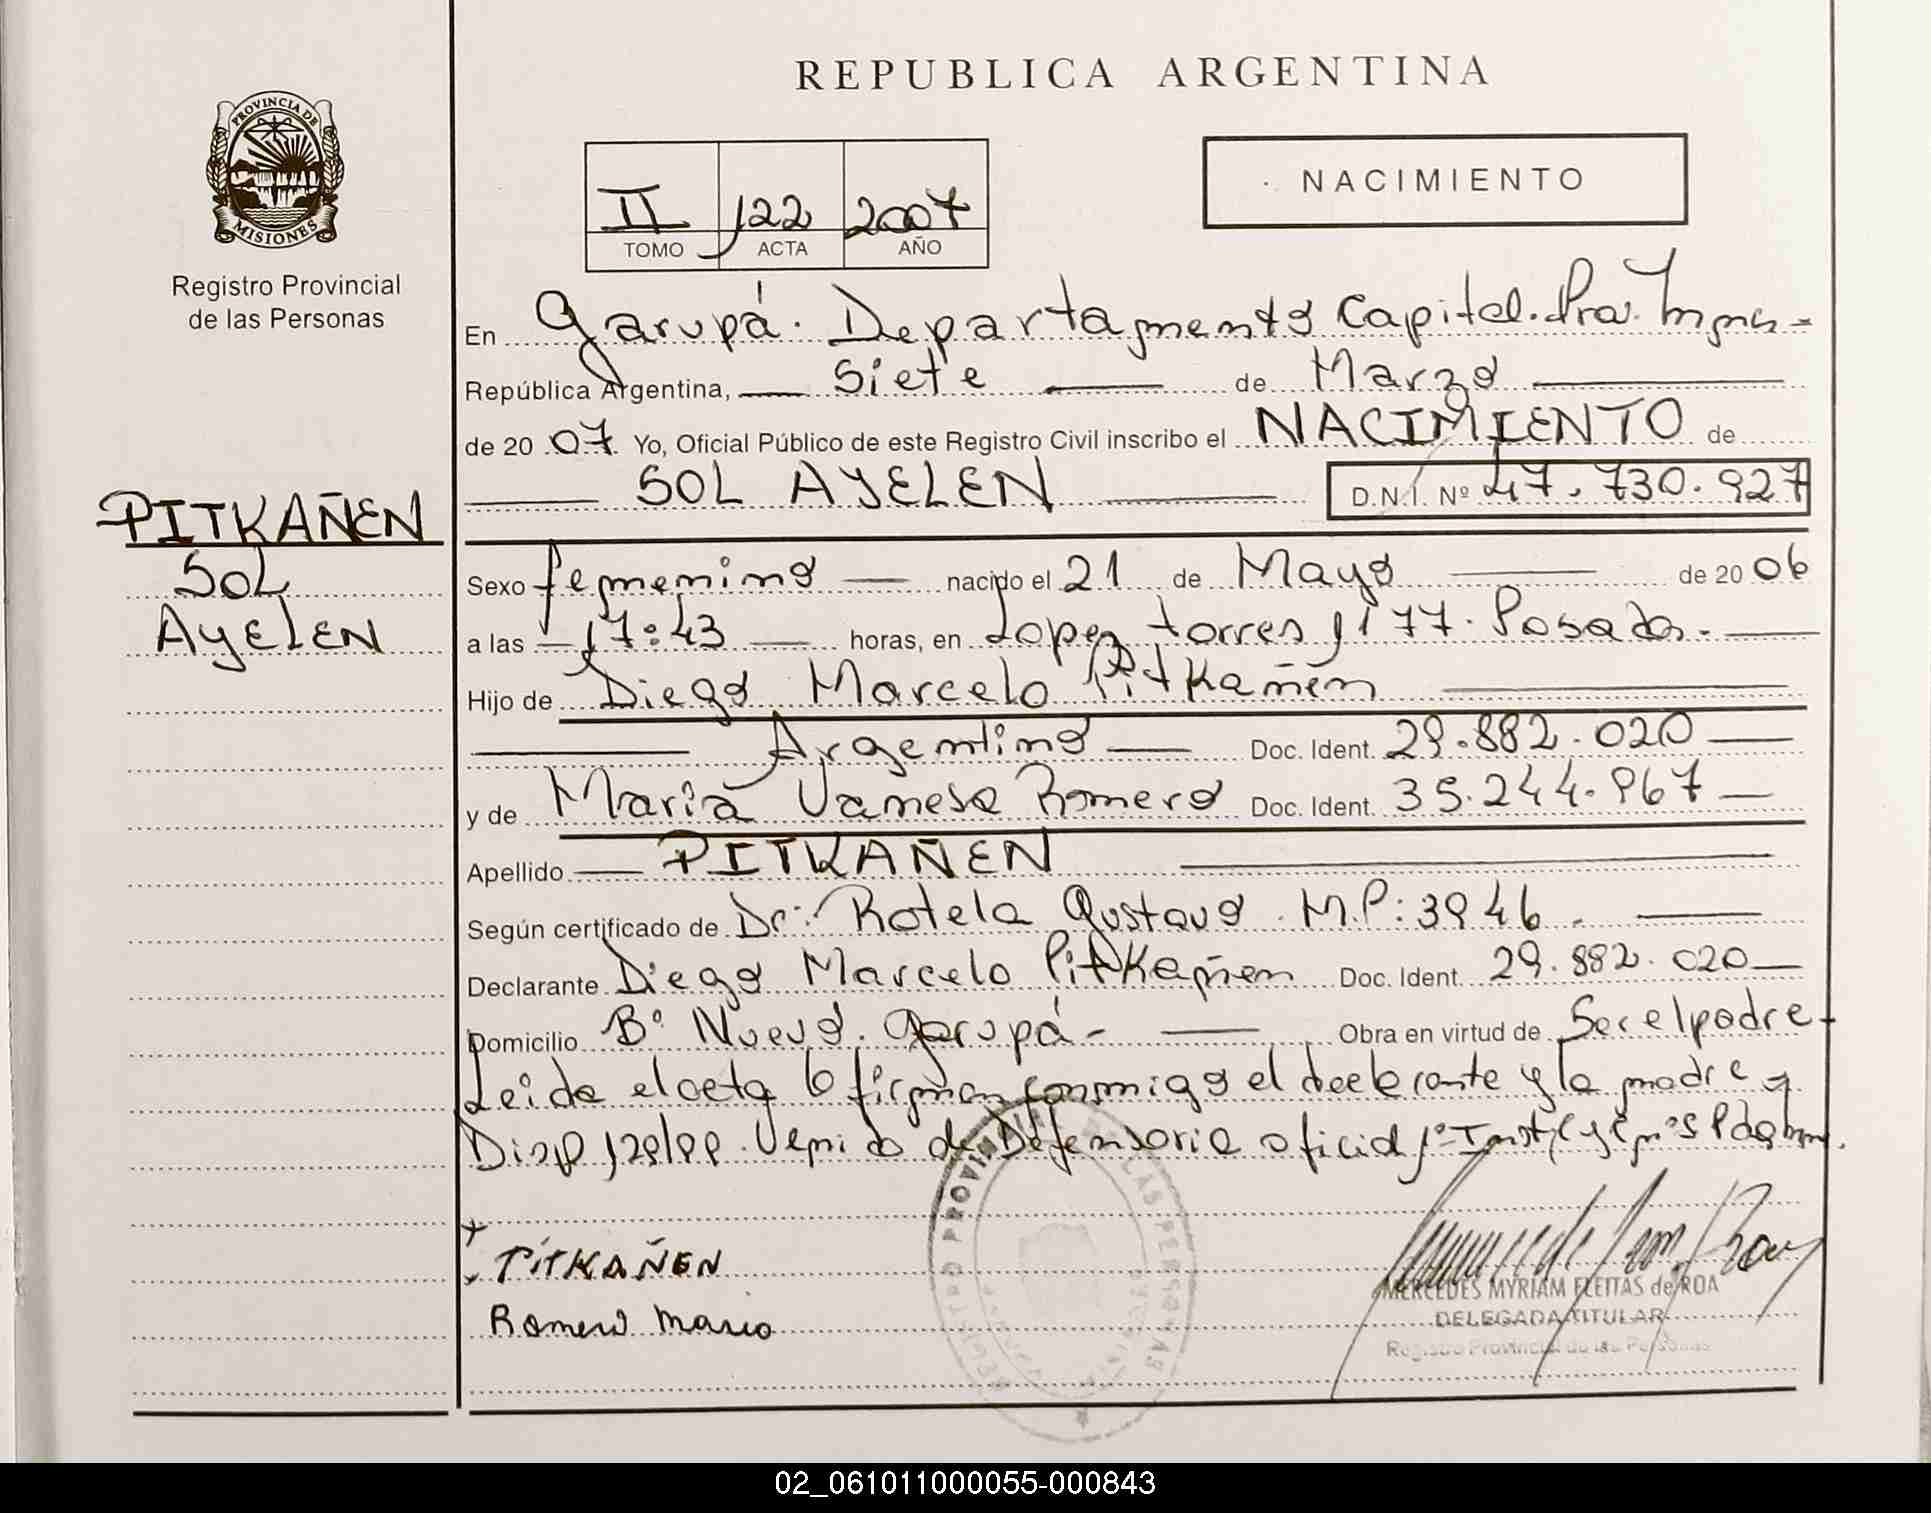 REPUBLICA ARGENTINA
PROVINCIA DE
MISIONES
Registro Provincial
de las Personas
II 122 2007
TOMO ACTA AÑO
NACIMIENTO
En Garupá. Departamento Capital. Pra. Mnes-
República Argentina, siete de Marzo
de 2007 Yo, Oficial Público de este Registro Civil inscribo el NACIMIENTO de
SOL AYELEN D.N.I. Nº 47.730.927
PITKAÑEN
SOL
AYELEN
Sexo femenino nacido el 21 de Mayo de 2006
a las 17:43 horas, en Lopez torres 1177. Posadas.
Hijo de Diego Marcelo Pitkañen
Argentino Doc. Ident. 29.882.020
y de Maria Vanesa Romero Doc. Ident. 35.244.967
Apellido PITKAÑEN
Según certificado de Dr: Rotela Gustavo. M.P: 3946.
Declarante Diego Marcelo Pitkañen Doc. Ident. 29.882.020
Domicilio Bº Nuevo. Garupá- Obra en virtud de Ser el padre
Leida el acta lo firman conmigo el declarante y la madre
Disp 129/99. Venido de Defensoria oficial 1º Inst
PITKAÑEN
Romero Maria
REGISTRO PROVINCIAL DE LAS PERSONAS
MERCEDES MYRIAM FLEITAS de ROA
DELEGADA TITULAR
Registro Provincial de las Personas
02_061011000055-000843